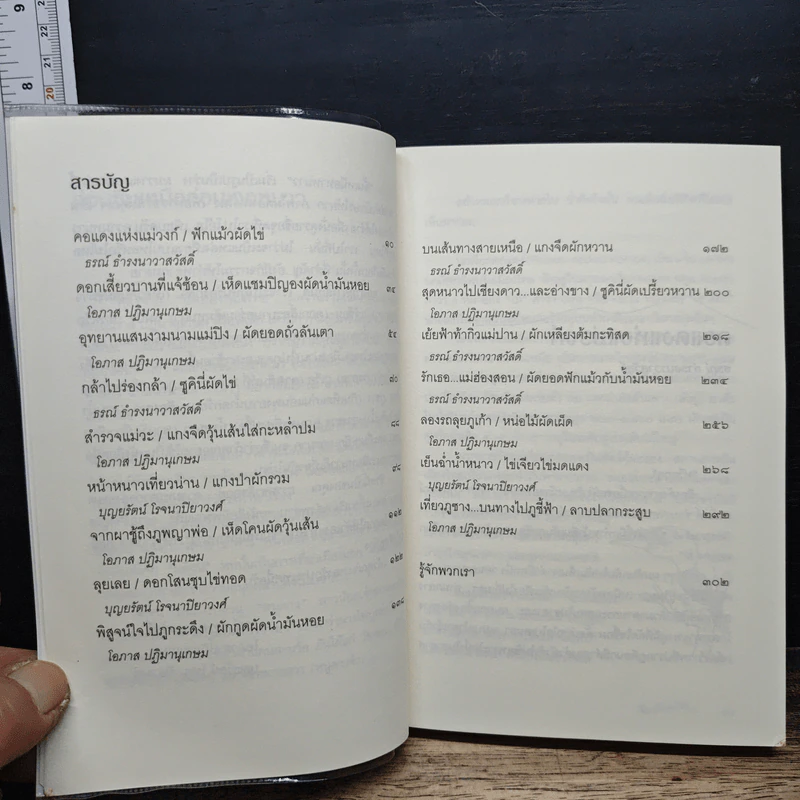 9
8
22
21
20
สารบัญ
คอแดงแห่งแม่วงก์ / ฟักแม้วผัดไข่ ๑๐
ธรณ์ ธำรงนาวาสวัสดิ์
ดอกเสี้ยวบานที่แจ้ซ้อน / เห็ดแชมปิญองผัดน้ำมันหอย ๓๔
โอภาส ปฏิมานุเกษม
อุทยานแสนงามนามแม่ปิง / ผัดยอดถั่วลันเตา ๕๔
โอภาส ปฏิมานุเกษม
กล้าไปร่องกล้า / ซูคินี่ผัดไข่ ๗๐
ธรณ์ ธำรงนาวาสวัสดิ์
สำรวจแม่วะ / แกงจืดวุ้นเส้นใส่กะหล่ำปม ๘๘
โอภาส ปฏิมานุเกษม
หน้าหนาวเที่ยวน่าน / แกงป่าผักรวม ๙๘
บุญยรัตน์ โรจนาปิยาวงศ์
จากผาชู้ถึงภูพญาพ่อ / เห็ดโคนผัดวุ้นเส้น ๑๑๒
โอภาส ปฏิมานุเกษม
ลุยเลย / ดอกโสนชุบไข่ทอด ๑๒๒
บุญยรัตน์ โรจนาปิยาวงศ์
พิสูจน์ใจไปภูกระดึง / ผักกูดผัดน้ำมันหอย ๑๓๘
โอภาส ปฏิมานุเกษม
บนเส้นทางสายเหนือ / แกงจืดผักหวาน ๑๗๒
ธรณ์ ธำรงนาวาสวัสดิ์
สุดหนาวไปเชียงดาว...และอ่างขาง / ซูคินี่ผัดเปรี้ยวหวาน ๒๐๐
โอภาส ปฏิมานุเกษม
เย้ยฟ้าท้ากิ่วแม่ปาน / ผักเหลียงต้มกะทิสด ๒๑๘
ธรณ์ ธำรงนาวาสวัสดิ์
รักเธอ...แม่ฮ่องสอน / ผัดยอดฟักแม้วกับน้ำมันหอย ๒๓๔
ธรณ์ ธำรงนาวาสวัสดิ์
ลองรถลุยภูเก้า / หน่อไม้ผัดเผ็ด ๒๕๖
โอภาส ปฏิมานุเกษม
เย็นฉ่ำน้ำหนาว / ไข่เจียวไข่มดแดง ๒๖๘
บุญยรัตน์ โรจนาปิยาวงศ์
เที่ยวภูซาง...บนทางไปภูชี้ฟ้า / ลาบปลากระสูบ ๒๙๒
โอภาส ปฏิมานุเกษม
รู้จักพวกเรา ๓๐๒